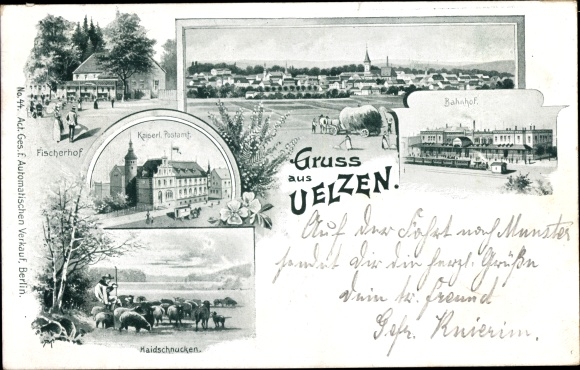 No. 44. Act. Ges. f. Automatischen Verkauf, Berlin.
Fischerhof
Kaiserl. Postamt.
Bahnhof.
Gruss
aus
UELZEN.
Haidschnucken.
Auf der Fahrt nach Munster
sendet Dir die herzl. Grüße
Dein tr. Freund
Gefr. Knierim.